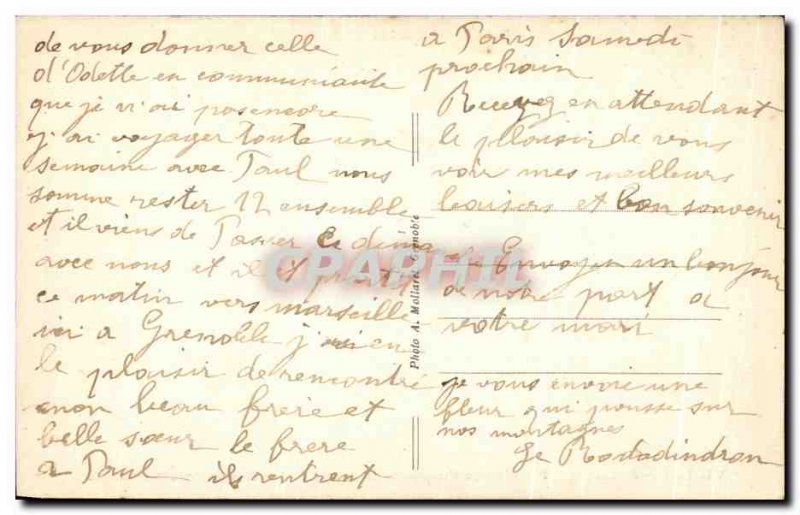 de vous donner celle
d'Odette en communiante
que je n'ai pas encore
j'ai voyager toute une
semaine avec Paul nous
somme rester 12 ensemble
et il viens de Passer le dima
avec nous et il est parti
ce matin vers marseille
ici a Grenoble j' eu
le plaisir de rencontré
mon beau frère et
belle sœur le frère
a Paul ils rentrent
a Paris Samedi
prochain
Recevez en attendant
le plaisir de vous
voir mes meilleurs
baisers et bon souvenir
Envoyer un bonjour
de notre part a
votre mari
je vous envoie une
fleur qui pousse sur
nos montagnes
Le Rododindron
Photo A. Mollaret Grenoble
CPAPHIL